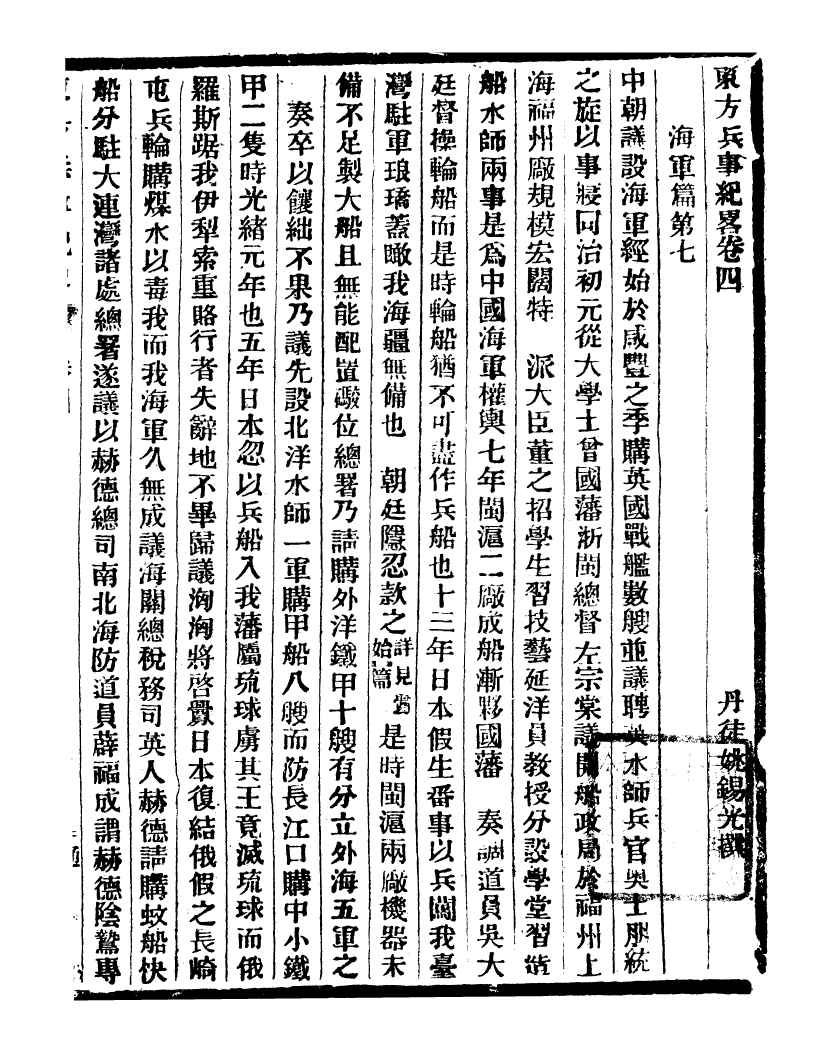 東方兵事紀畧卷四
丹徒姚錫光撰
海軍篇第七
中朝議設海軍經始於咸豐之季購英國戰艦數艘並議聘英水師兵官奧士朋統
之旋以事寢同治初元從大學士曾國藩浙閩總督左宗棠議開船政局於福州上
海福州廠規模宏闊特 派大臣董之招學生習技藝延洋員教授分設學堂習造
船水師兩事是爲中國海軍權輿七年閩滬二廠成船漸夥國藩 奏調道員吳大
廷督操輪船而是時輪船猶不可盡作兵船也十三年日本假生番事以兵闖我臺
灣駐軍琅𤩝蓋瞰我海疆無備也 朝廷隱忍款之詳見釁始篇 是時閩滬兩廠機器未
備不足製大船且無能配置礮位總署乃請購外洋鐵甲十艘有分立外海五軍之
奏卒以餽絀不果乃議先設北洋水師一軍購甲船八艘而防長江口購中小鐵
甲二隻時光緒元年也五年日本忽以兵船入我藩屬琉球虜其王竟滅琉球而俄
羅斯踞我伊犁索重賂行者失辭地不畢歸議洶洶將啓釁日本復結俄假之長崎
屯兵輪購煤水以毒我而我海軍久無成議海關總稅務司英人赫德請購蚊船快
船分駐大連灣諸處總署遂議以赫德總司南北海防道員薛福成謂赫德陰鷙專